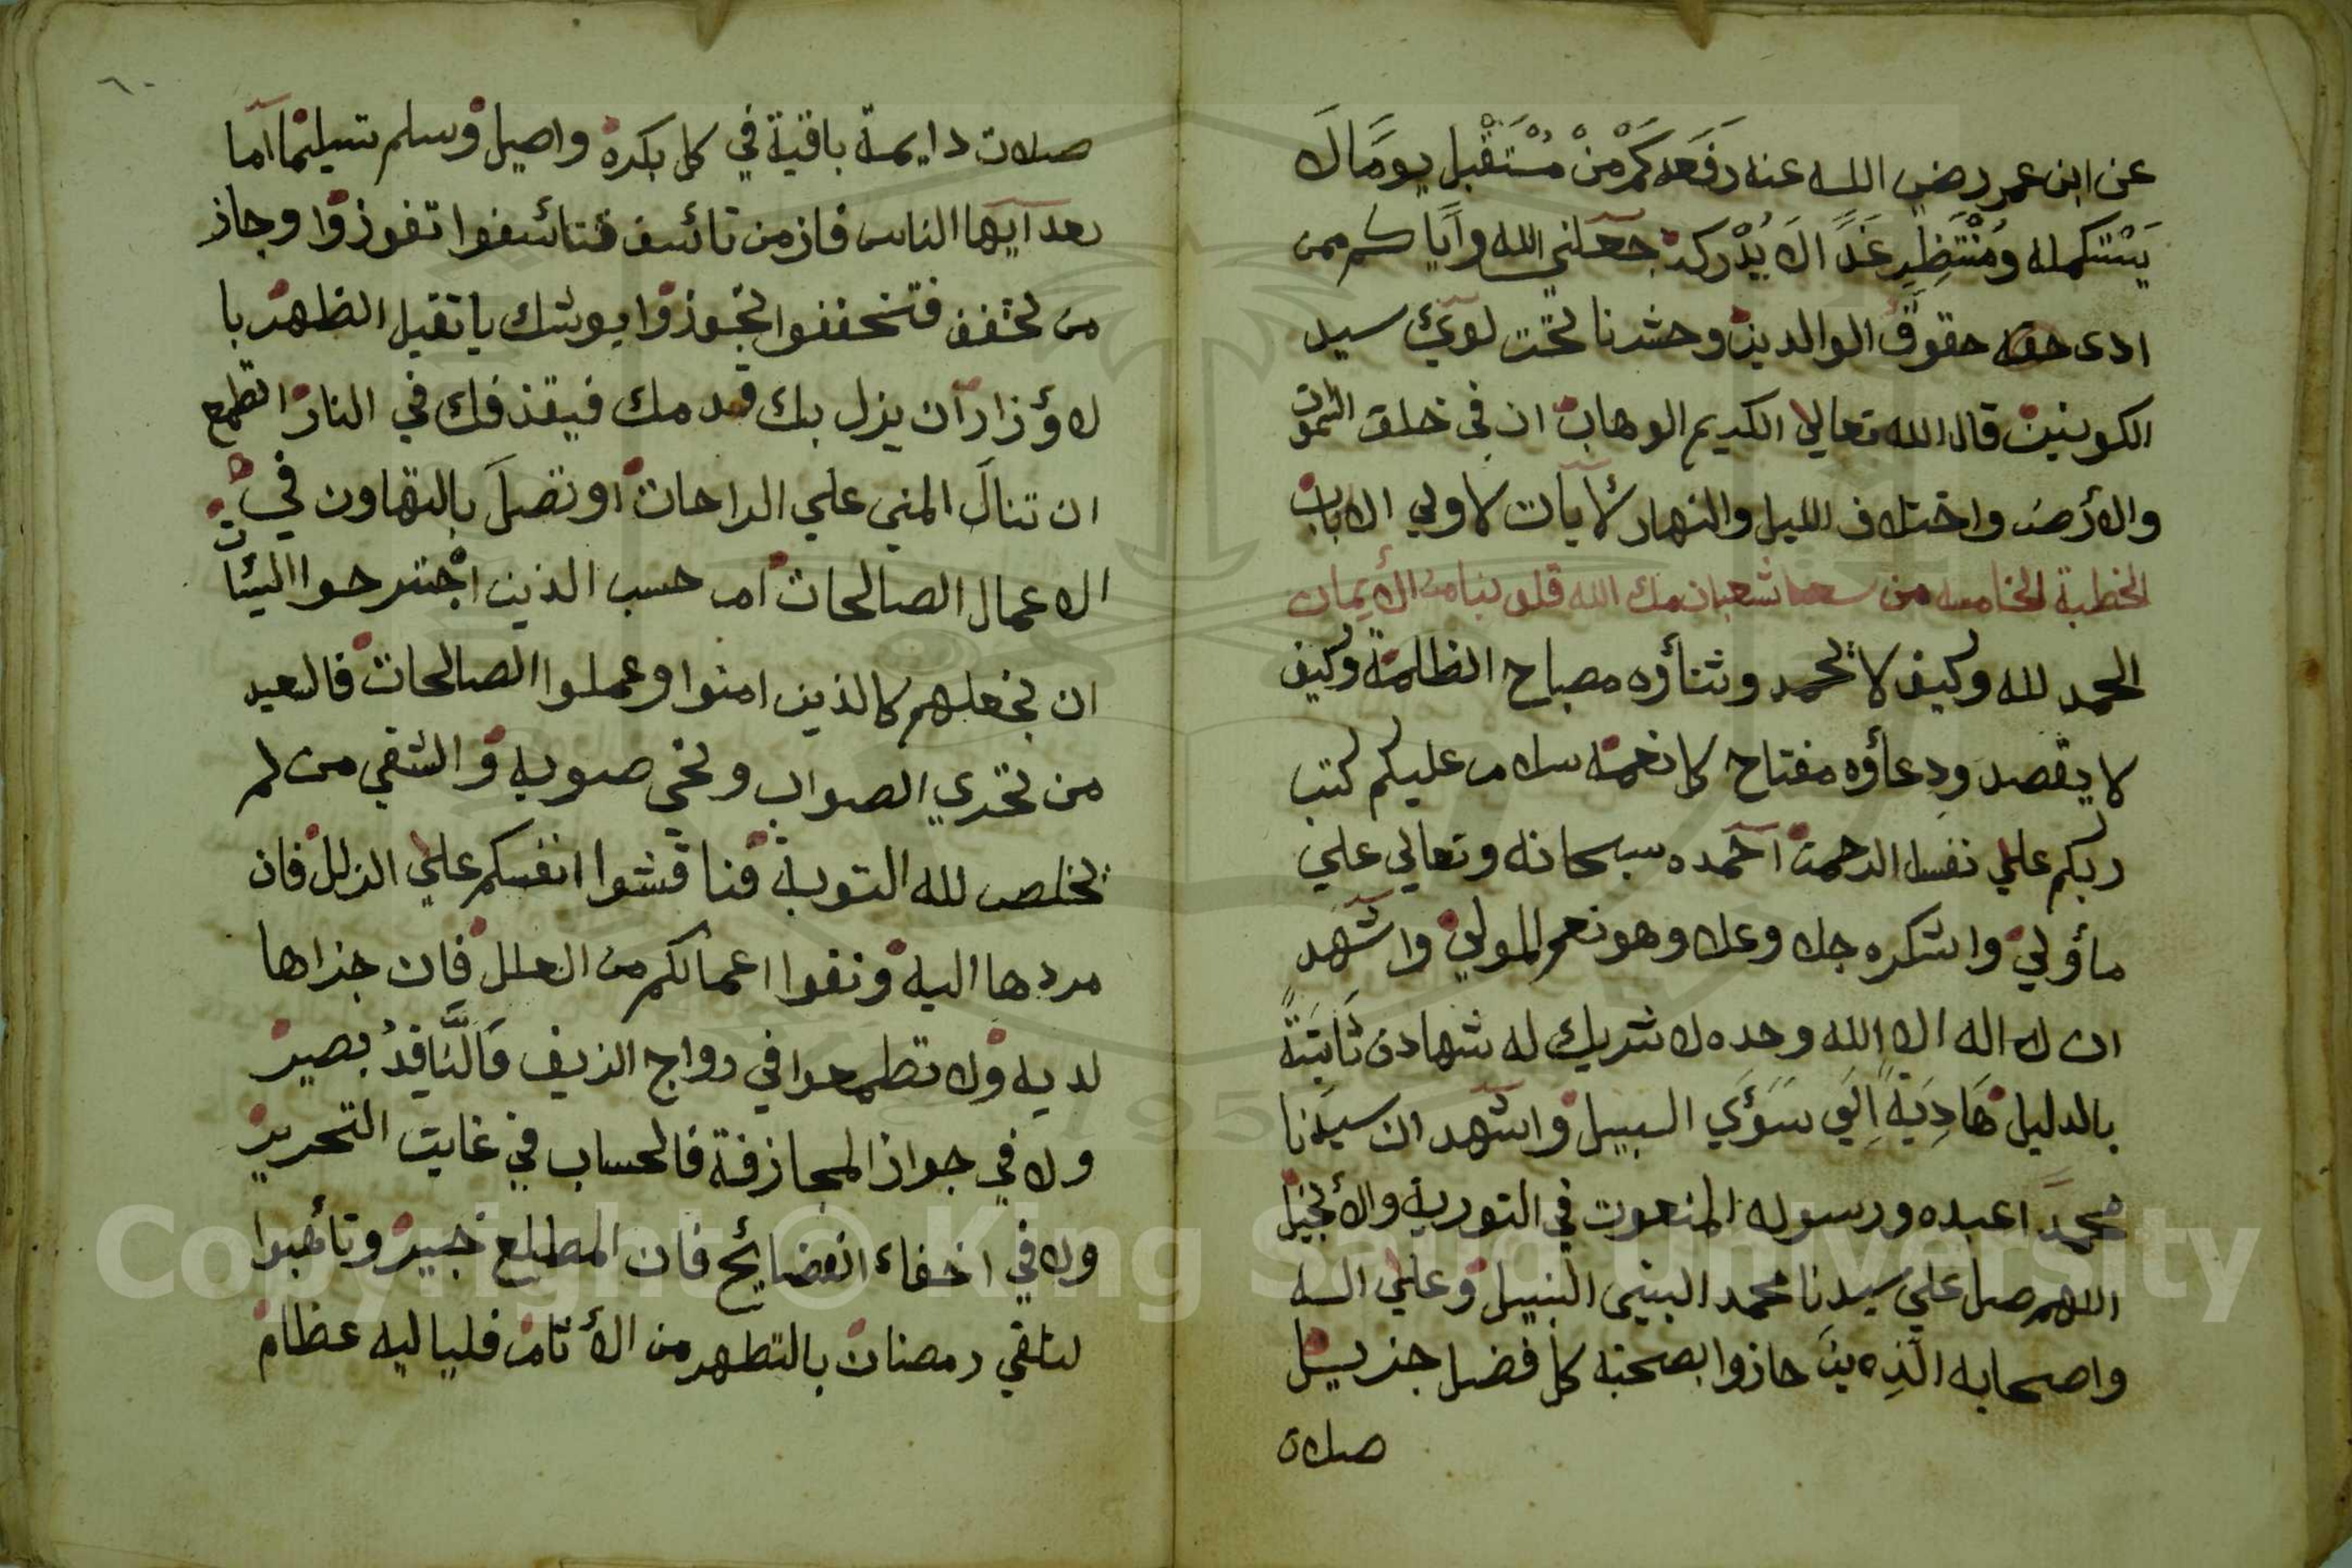 عن ابن عمر رضي الله عنه رفعه كَمْ مِنْ مُسْتَقْبِل يومًا لَا
يَسْتكمله ومُنْتَظِرِ غَدًا لَا يُدْركه جعلني الله وآيَاكم ممن
ادى حقه حقوق الوالدين وحشرنا تحت لوئ سيد
الكونين قال الله تعالي الكريم الوهاب ان في خلق السموات
والأرض واختلاف الليل والنهار لأيات لاولي الالباب
الخطبة الخامسه من شعبان ملك الله قلوبنا من الأيمان
الحمد لله وكيف لا يحمد وثنأؤه مصباح الظلمة وكيف
لا يقصد ودعأؤه مفتاح كل نعمة سلام عليكم كتب
ربكم علي نفسه الرحمة أحمده سبحانه وتعالي علي
مأولي واشكره جل وعلا وهو نعم المولي واشهد
ان لا اله الا الله وحده لا شريك له شهادة ثَابَتةً
بالدليل هَادِيَةً اِلَي سَوَؤَي السبيل واشهد ان سيدنا
محمدًا عبده ورسوله المنعوت في التورية والأنجيل
اللهم صل علي سيدنا محمد النبي النبيل وعلي اله
واصحابه الذين حازوا بصحبته كل فضل جزيل
صلاة
٦٠
صلات دايمة باقية في كل بكرة واصيل وسلم تسليما آما
بعد آيها الناس فاز من تأسف فتأسفوا تفوزوا وجاز
من تخفف فتخففوا تجوزوا يوشك يا ثقيل الظهر با
لاؤزار ان يزل بك قدمك فيقذفك في النار اتطمع
ان تنالَ المني علي الراحات او تصلَ بالتهاون في
الاعمال الصالحات ام حسب الذين اجْترحوا السيئات
ان نجعلهم كالذين امنوا وعملوا الصالحات فالسعيد
من تحري الصواب ونحى صوبه والشقي من لم
يخلص لله التوبة فناقشوا انفسكم علي الزلل فان
مردها اليه ونقوا اعمالكم من العلل فان جزاها
لديه ولا تطمعوا في رواج الزيف فَالنَّاقِدُ بصير
ولا في جواز المجازفة فالحساب في غايت التحرير
ولا في اخفاء الفضائح فان المطلع خبير وتأهبوا
لتلقي رمضان بالتطهر من الأثام فلياليه عظام
Copyright © King Saud University
1957